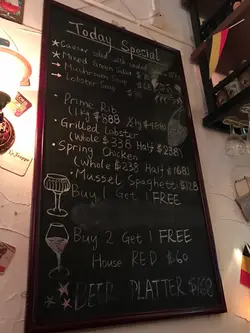 Today Special
* Caesar salad with smoked
* Mixed Green Salad $
→ Mushroom Soup $
→ Lobster Soup
• Prime Rib
(1kg $888 ½kg $468)
• Grilled Lobster
(whole $338 Half $238)
• Spring Chicken
(whole $238 Half $168)
• Mussel Spaghetti $128
Buy 1 Get 1 FREE
Buy 2 Get 1 FREE
House RED $60
BEER PLATTER $168